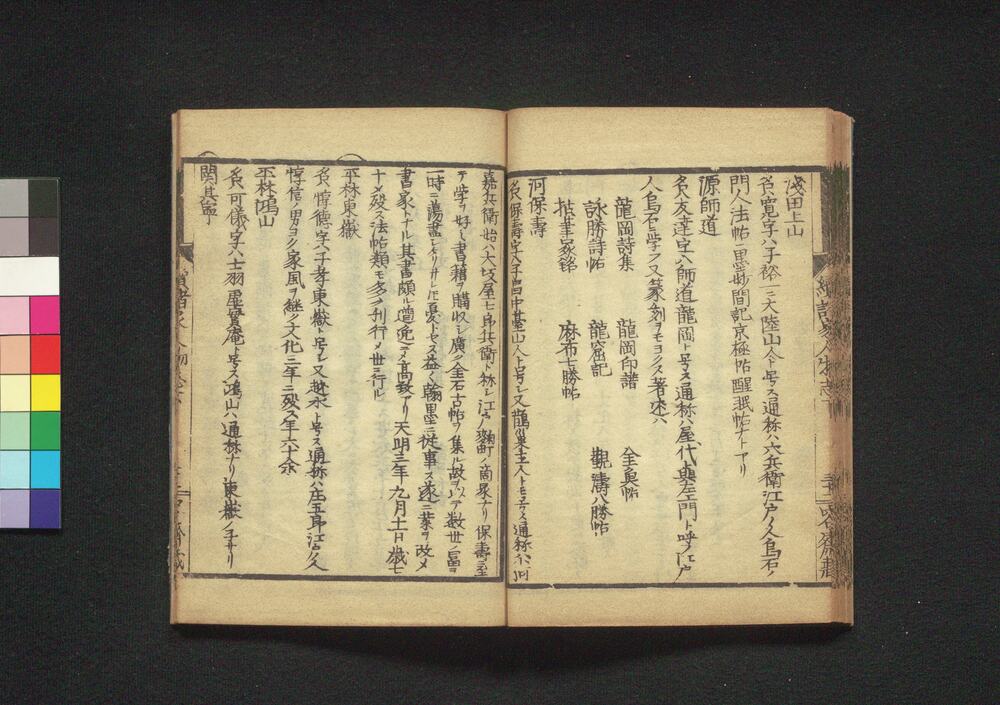 淺田上山
名ハ寛字ハ子裕一ニ大陸山人ト号ス通称ハ六兵衛江戸ノ人烏石ノ
門人法帖ニ墨妙間記京極帖醒眠帖ナトアリ
源師道
名ハ友達字ハ師道龍岡ト号ス通称ハ屋代典左エ門ト呼フ江戸ノ
人烏石ニ学フ又篆刻ヲモヨクス著述ハ
龍岡詩集 龍岡印譜 全奥帖
詠勝詩帖 龍窟記 觀濤八勝帖
筆冢銘 麻布七勝帖
河保壽
名保壽字ハ子昌中臺山人ト号シ又鵲巣主人トモ号ス通称ハ河
嘉兵衛始ハ大坂屋七郎兵衛ト称シ江戸麹町ノ商家ナリ保壽ニ至
テ学ヲ好ミ書籍ヲ購收シ廣ク金石古帖ヲ集ル故ヲ以テ数世ノ富ヲ
一時ニ蕩盡シタリサレ𪜈憂トセス益々翰墨ニ従事ス遂ニ業ヲ改メ
書家トナル其書頗ル遒逸ニテ高致アリ天明三年九月十二日歳七
十ニメ殁ス法帖類モ多ク刊行メ世ニ行ル
平林東嶽
名ハ惇德字ハ子孝東嶽ト号シ又越水ト号ス通称ハ庄五郎江戸ノ人
惇信ノ男ヨク家風ヲ継ク文化二年ニ殁ス年六十余
平林鴻山
名ハ可儀字ハ士羽虚實庵ト号ス鴻山ハ通称ナリ東嶽ノ子ナリ
関其寧
續諸家人物志